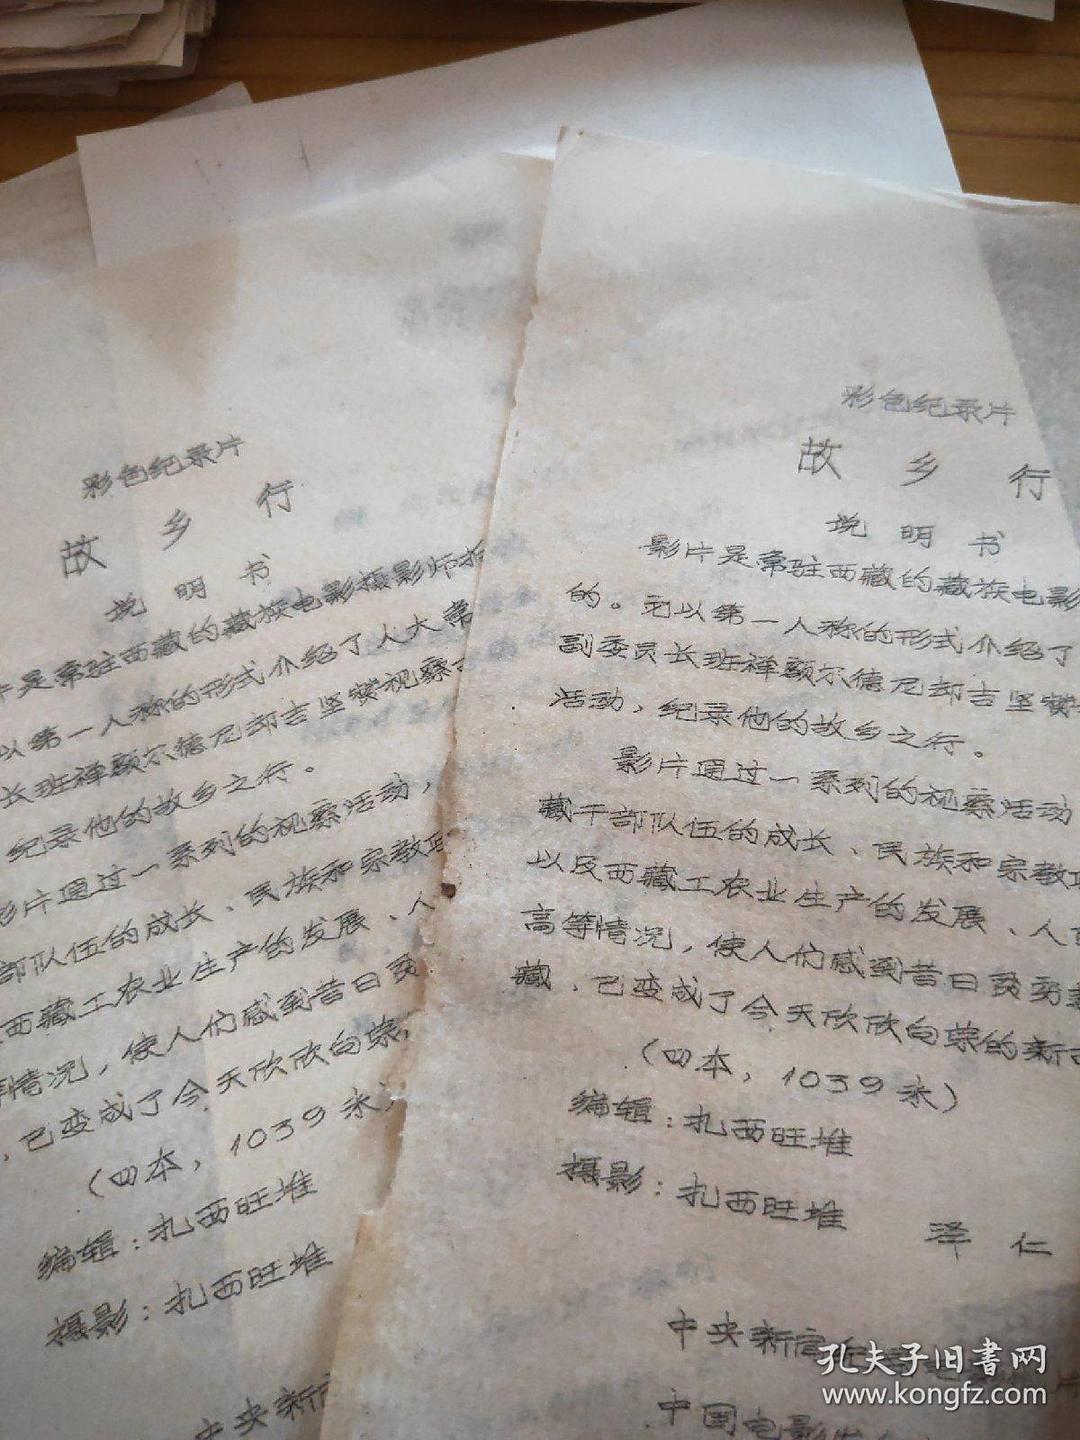 彩色纪录片
故乡行
说明书
片是常驻西藏的藏族电影摄影师拍
以第一人称的形式介绍了人大常
长班禅额尔德尼却吉坚赞视察
纪录他的故乡之行。
影片通过一系列的视察活动，
部队伍的成长、民族和宗教政
西藏工农业生产的发展、人
等情况，使人们感到昔日贫
，已变成了今天欣欣向荣
（四本，1039米）
编辑：扎西旺堆
摄影：扎西旺堆
中央新
彩色纪录片
故乡行
说明书
影片是常驻西藏的藏族电影
的。它以第一人称的形式介绍了
副委员长班禅额尔德尼却吉坚赞
活动，纪录他的故乡之行。
影片通过一系列的视察活动
藏干部队伍的成长、民族和宗教政
以及西藏工农业生产的发展、人
高等情况，使人们感到昔日贫穷
藏，已变成了今天欣欣向荣的新西
（四本，1039米）
编辑：扎西旺堆
摄影：扎西旺堆
泽仁
中央新闻
中国电影发
孔夫子旧书网
www.kongfz.com